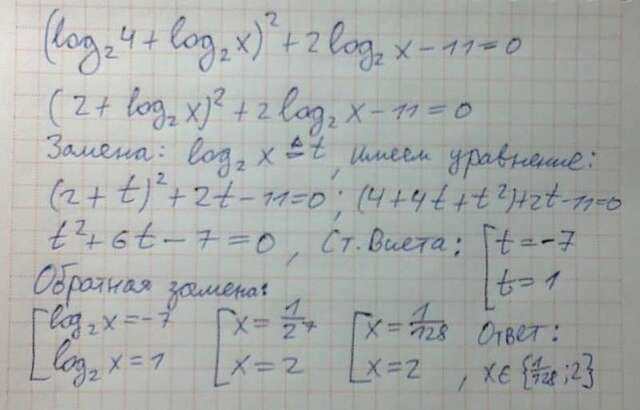 (log₂4 + log₂x)² + 2log₂x − 11 = 0
(2 + log₂x)² + 2log₂x − 11 = 0
Замена: log₂x ≜ t, имеем уравнение:
(2 + t)² + 2t − 11 = 0; (4 + 4t + t²) + 2t − 11 = 0
t² + 6t − 7 = 0, Ст. Виета: [t = −7
t = 1
Обратная замена:
[log₂x = −7 [x = 1/2⁷ [x = 1/128 Ответ:
log₂x = 1 x = 2 x = 2, x ∈ {1/128; 2}